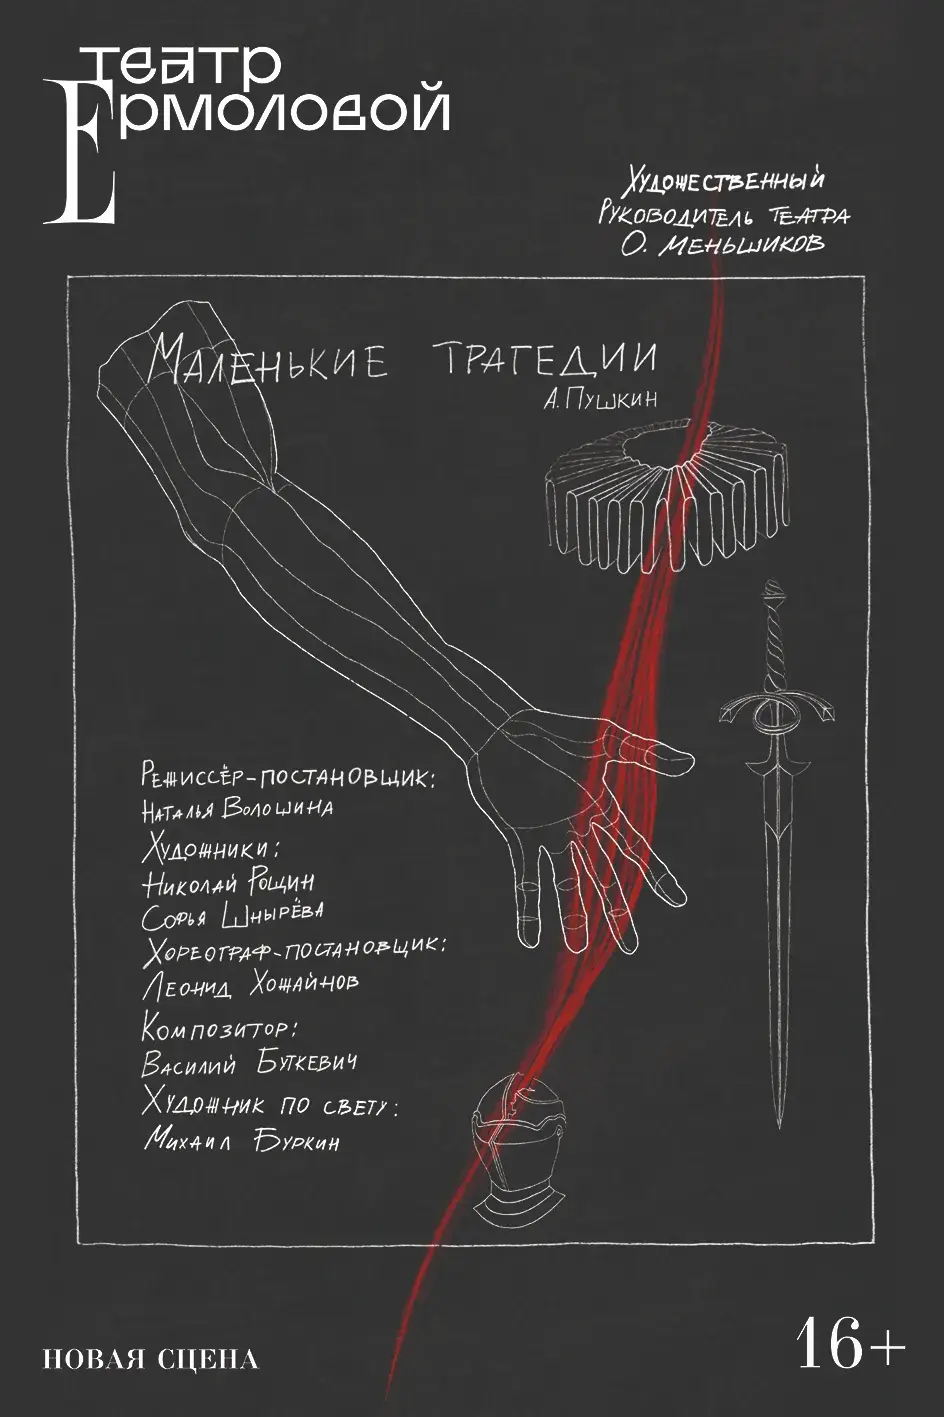 театр
Ермоловой
Художественный
Руководитель театра
О. Меньшиков
Маленькие трагедии
А. Пушкин
Режиссёр-постановщик:
Наталья Волошина
Художники:
Николай Рощин
Софья Шнырёва
Хореограф-постановщик:
Леонид Хожайнов
Композитор:
Василий Буткевич
Художник по свету:
Михаил Буркин
НОВАЯ СЦЕНА
16+